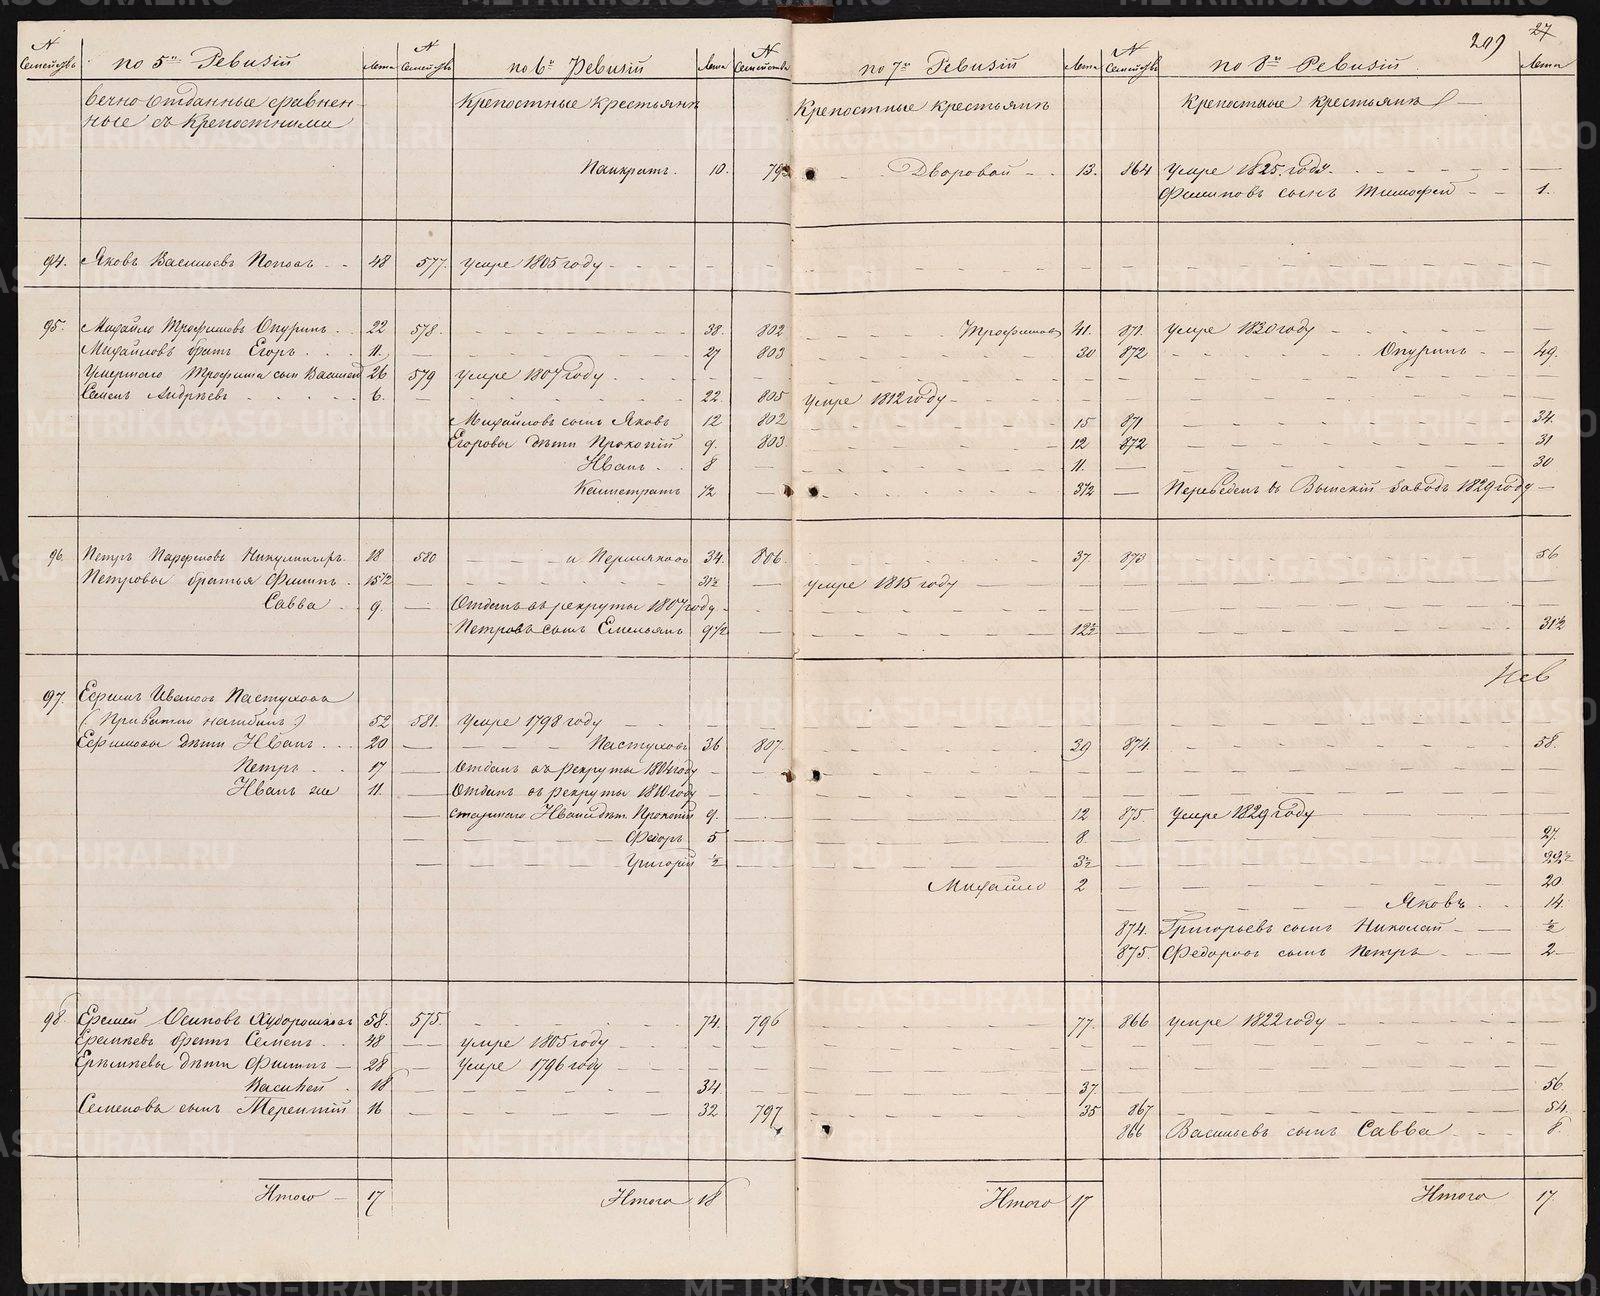 209 27
N Семействъ по 5й Ревизіи Лета N Семействъ по 6й Ревизіи Лета N Семейства по 7й Ревизіи Лета N Семействъ по 8й Ревизіи Лета
Вечно отданные сравнен- Крепостные крестьянѣ Крепостные крестьянѣ Крепостные крестьянѣ
ные съ крепостными
Панкратъ. 10. 793 Дворовой 13. 864 умре 1825 году
Филиповъ сынъ Тимофей 1.
94. Яковъ Васильевъ Поповъ 48 577. умре 1805 году
95. Михайло Трофимовъ Опуринъ 22 578 38. 802 Трофимовъ 41. 871. умре 1830 году
Михайловъ братъ Егоръ 11. 27 803 30 872 Опуринъ 49.
Умершаго Трофима сын Василей 26 579 умре 1807 году
Семенъ Андреевъ 6. 22 805 умре 1812 году
Михайловъ сынъ Яковъ 12 802 15 871 34.
Егоровы дѣти Прокопій 9. 803 12 872 31
Иванъ 8 11. 30
Калистратъ 1/2 3 1/2 Переведенъ въ Выйскій заводъ 1829 году
96. Петръ Парфеновъ 18 580 и Пермяковъ 34. 806. 37. 873 56
Петровы братья Филипъ 15 1/2 31 1/2 умре 1815 году
Савва 9. Отданъ въ рекруты 1807 году
Петровъ сынъ Емельянъ 9 1/2 12 1/2 31 1/2
97. Ефимъ Ивановъ Пастуховъ
52 581. умре 1798 году
Ефимовы дѣти Иванъ 20 Пастуховъ 36 807. 39 874 58.
Петръ 17 Отданъ въ рекруты 1804 году
Иванъ же 11. Отданъ въ рекруты 1810 году
старшаго Ивана дѣти Прокопій 9. 12 875 умре 1829 году
Федоръ 5 8. 27.
Григорій 1/2 3 1/2 22 1/2
Михайло 2 20.
Яковъ 14.
874. Григорьевъ сынъ Николай 1/2
875. Федоровъ сынъ Петръ 2
98. Еремей Осиповъ Худорошковъ 58. 575. 74. 796 77. 866 умре 1822 году
Еремеевъ братъ Семенъ 48 умре 1805 году
Еремеевы дѣти Филипъ 28 умре 1796 году
Василей 18 34. 37. 56.
Семеновъ сынъ Терентій 16 32 797 35 867 54.
866 Васильевъ сынъ Савва 8.
Итого 17 Итого 18 Итого 17 Итого 17.
METRIKI.GASO-URAL.RU